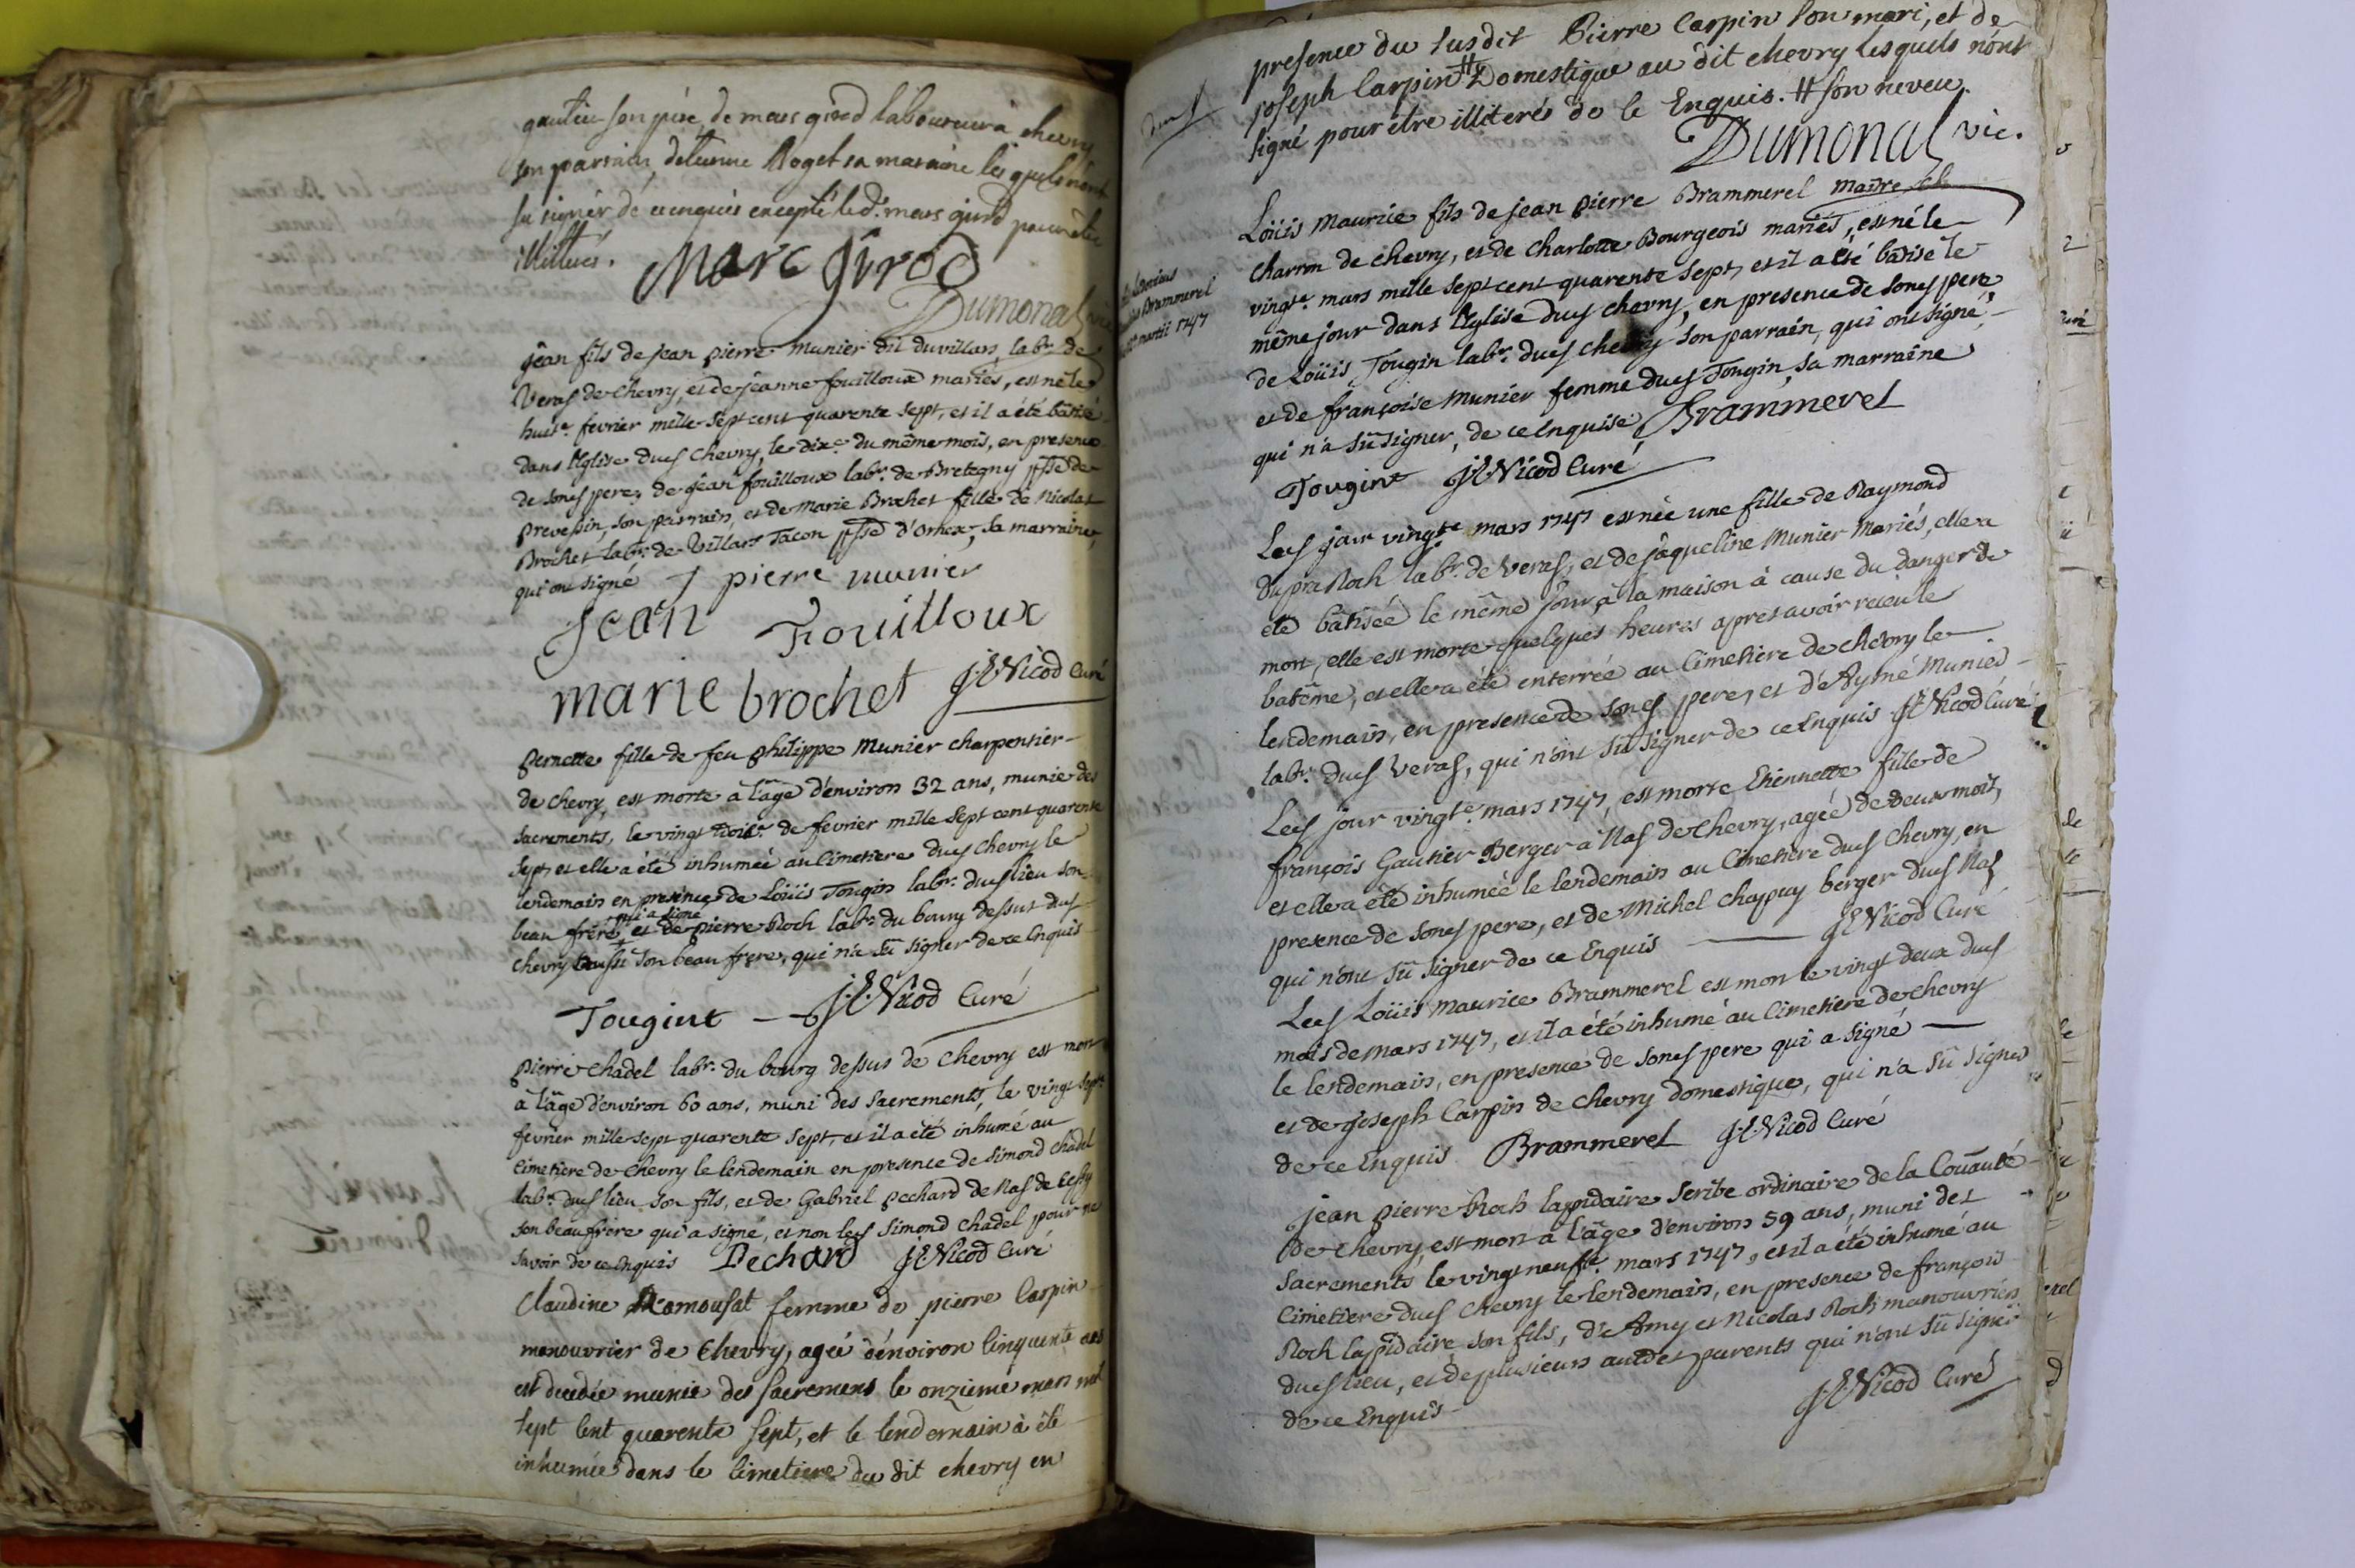 gautier son père, de marc girod laboureur à chevry
son parrain, d'etienne Roget sa maraine lesquels n'ont
su signer de ce enquis excepté led.t marc girod pour être
illitterés.
Marc Girod
Dumonal vic
jean fils de jean pierre munier dit duvillars, labr. de
Veras de chevry, et de jeanne fouilloux mariés, est né le
huit.e fevrier mille sept cent quarente sept, et il a été bâtisé
dans l'Eglise dud chevry, le dix.e du même mois, en presence
de sond pere, de jean fouilloux labr. de Bretegny psse de
Prevessin, son parrain, et de marie Brochet fille de Nicolas
Brochet labr. de Villars Tacon psse d'Ornex, sa marraine,
qui ont signé J pierre munier
Jean Fouilloux
marie brochet J.E. Nicod Curé
Pernette fille de feu philippe Munier charpentier
de chevry, est morte à l'age d'environ 32 ans, munie des
sacrements, le vingt trois.e de fevrier mille sept cent quarente
sept, et elle a été inhumée au Cimetiere dud chevry le
lendemain en presence de Loüis Tougin labr. dud lieu son
qui a signé
beau frere, et de pierre Roch labr. du bourg dessus dud
chevry aussi son beau frere, qui n'a sû signer de ce Enquis
Tougint J.E. Nicod Curé
Pierre chadel labr. du bourg dessus de chevry est mort
à l'âge d'environ 60 ans, muni des sacrements, le vingt sept.e
fevrier mille sept quarente sept, et il a été inhumé au
Cimetiere de chevry le lendemain en presence de Simond chadel
labr. dud lieu son fils, et de Gabriel Pechard de Nas de Cessy
son beau frere qui a signé, et non led Simond chadel pour ne
savoir de ce enquis Pechard J.E. Nicod Curé
Claudine Ramousat femme de pierre Carpin
manouvrier de Chevry, agée d'environ Cinquente ans
est decedée munie des sacremens le onzieme mars mil
sept cent quarente sept, et le lendemain à été
inhumée dans le Cimetiere du dit chevry en
presence du susdit Pierre Carpin son mari, et de
joseph Carpin # Domestique au dit chevry lesquels n'ont
signé pour être illiterés de ce Enquis. # son neveu.
Dumonal vic.
Loüis Maurice fils de jean pierre Brammerel maitre
charron de chevry, et de Charlotte Bourgeois mariés, est né le
vingt.e mars mille sept cent quarente sept, et il a été bâtisé le
même jour dans l'Eglise dud chevry, en presence de sond pere,
de Loüis Tougin labr. dud chevry son parrain, qui ont signé,
et de françoise Munier femme dud Tougin, sa marraine
qui n'a sû signer, de ce Enquise Brammerel
Tougint J.E. Nicod Curé
Brammerel
martii 1747
Led jour vingt.e mars 1747 est née une fille de Raymond
Dupré Roch labr. de Veras, et de jaqueline Munier Mariés, elle a
été bâtisée le même jour à la maison à cause du danger de
mort, elle est morte quelques heures apres avoir receu le
batême, et elle a été enterrée au Cimetiere de chevry le
lendemain, en presence de sond pere, et d'Aymé Munier
labr. dud Veras, qui n'ont sû signer de ce Enquis J.E. Nicod Curé
Led jour vingt.e mars 1747, est morte Etiennette fille de
françois Gautier Berger à Nas de chevry, agée de deux mois,
et elle a été inhumée le lendemain au Cimetiere dud chevry, en
presence de sond pere, et de Michel chappuy berger dud Nas
qui n'ont sû signer de ce Enquis J.E. Nicod Curé
Led Loüis Maurice Brammerel est mort le vingt deux dud
mois de mars 1747, et il a été inhumé au Cimetiere de chevry
le lendemain, en presence de sond pere qui a signé
et de joseph Carpin de chevry domestique, qui n'a sû signer
de ce Enquis Brammerel J.E. Nicod Curé
jean pierre Roch lapidaire scribe ordinaire de la Coñauté
de chevry, est mort à l'âge d'environ 59 ans, muni des
sacrements le vingt neuf.e mars 1747, et il a été inhumé au
Cimetiere dud chevry le lendemain, en presence de françois
Roch lapidaire son fils, d'Amy et Nicolas Roch manouvriers
dud lieu, et de plusieurs autres parents qui n'ont sû signer
de ce Enquis
J.E. Nicod Curé